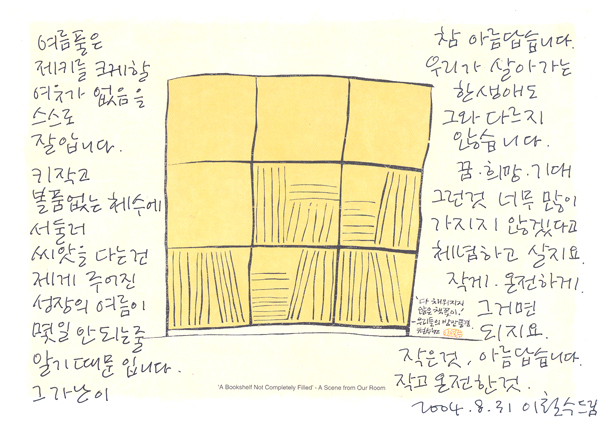 여름풀은
제키를 크게할
여유가 없음을
스스로
잘압니다.
키작고
볼품없는 체수에
서둘러
씨앗을 다는건
제게 주어진
성장의 여름이
몇일 안되는줄
알기 때문 입니다.
그가난이
참 아름답습니다.
우리가 살아가는
한생애도
그와 다르지
않습니다.
꿈·희망·기대
그런것 너무 많이
가지지 않겠다고
체념하고 살지요.
작게·온전하게.
그거면
되지요.
작은것, 아름답습니다.
작고 온전한것.
2004.8.31 이철수드림
'다 채워지지
않은 책꽂이.'
'A Bookshelf Not Completely Filled' - A Scene from Our Room